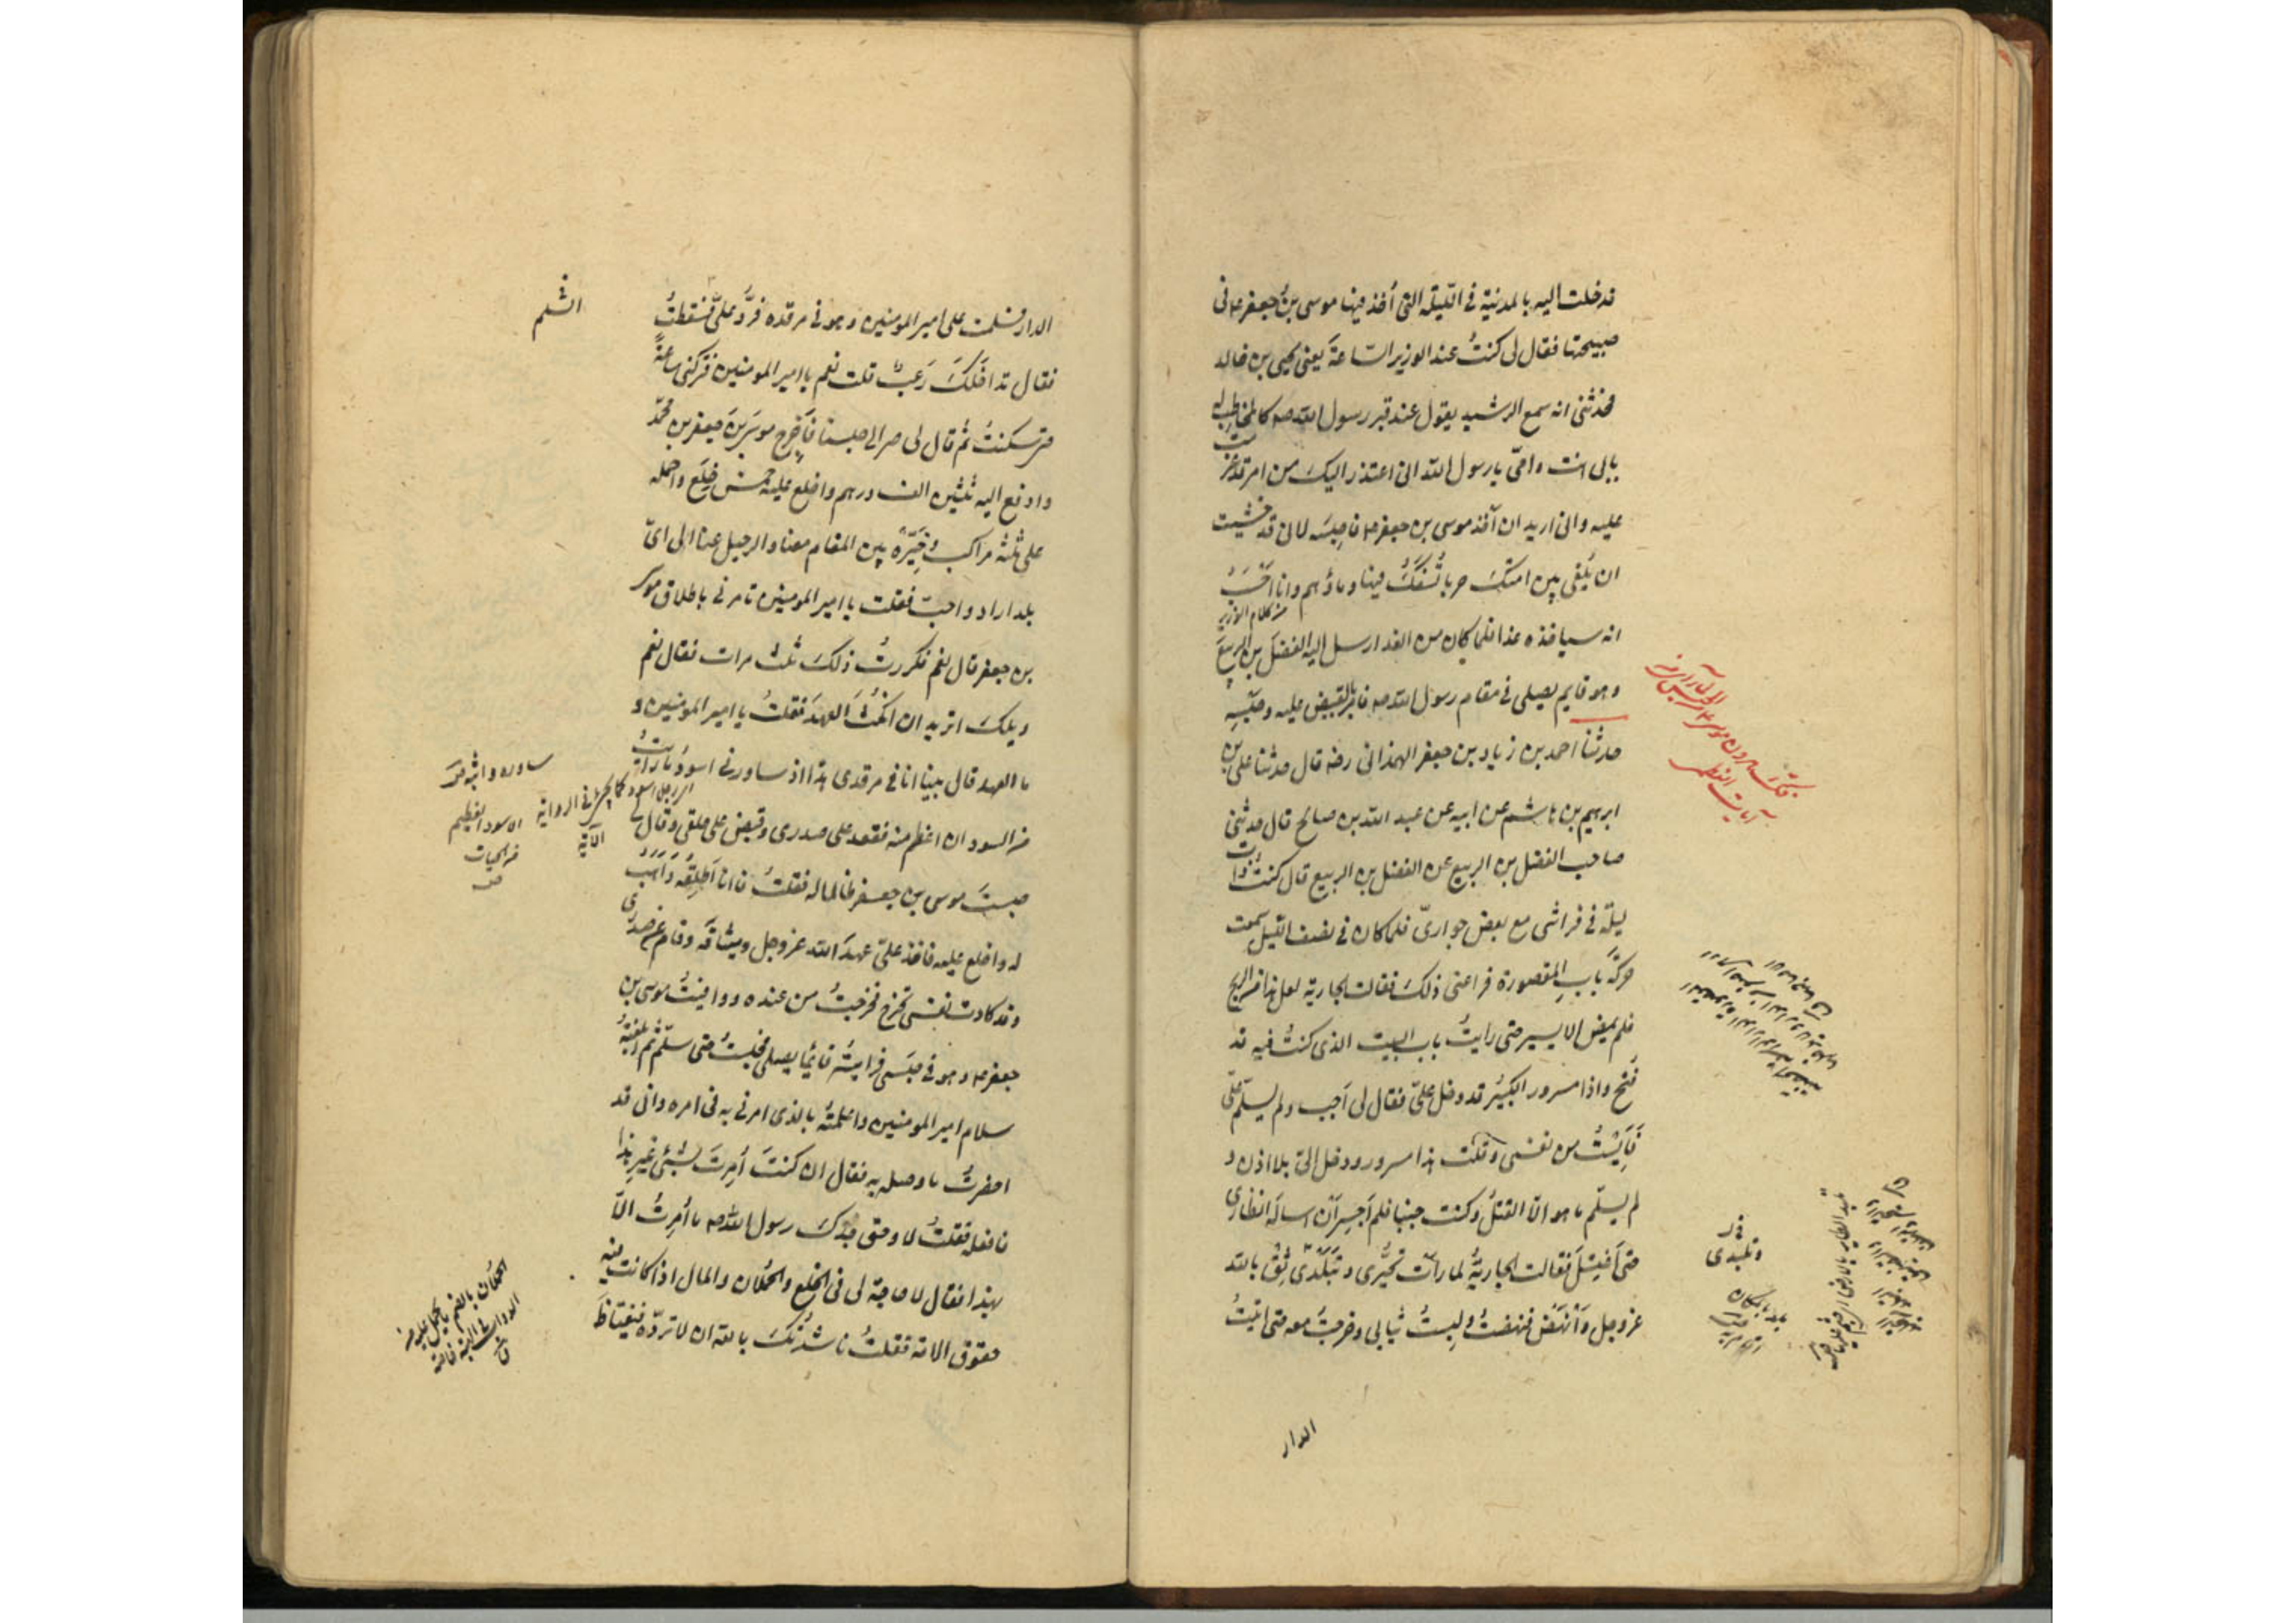 فدخلت اليه بالمدينة في الليلة التي أخذ فيها موسى بن جعفر ع في
صبيحتها فقال لي كنتُ عند الوزير الساعةَ يعني يحيى بن خالد
فحدثني انه سمع الرشيد يقول عند قبر رسول الله صه كالمخاطب له
بابي انت وامّي يا رسول الله اني اعتذر اليكَ من امر قد عزمت
عليه واني اريد ان آخذ موسى بن جعفر ع فاحبسَه لاني قد خشيت
ان يُلقى بين امتكَ حربا تُسْفَكُ فيها دماؤهم وانا احْسَبُ
من كلام الوزير
انه سياخذه غدا فلما كان من الغد ارسل اليه الفضلَ بن الربيعَ
وهو قايم يصلي في مقام رسول الله صه فامر بالقبض عليه وحبْسِهِ
حدثنا احمد بن زياد بن جعفر الهمداني رضه قال حدثنا علي بن
ابرهيم بن هاشم عن ابيه عن عبد الله بن صالح قال حدثني
صاحب الفضل بن الربيع عن الفضل بن الربيع قال كنتُ ذات
ليلة في فراشي مع بعض جواريّ فلما كان في نصف الليل سمعت
حركةَ بابِ المقصورة فراعني ذلكَ فقالت الجارية لعل هذا من الريح
فلم يمض الا يسير حتى رايتُ باب البيت الذي كنتُ فيه قد
فُتح واذا مسرور الكبيرُ قد دخل عليّ فقال لي اَجِب ولم يسلّم عليّ
فَاَيِسْتُ من نفسي وقلت هذا مسرور ودخل اليّ بلا اذن و
لم يسلّم ما هو الا القتلُ وكنت جنبا فلم اَجسِر اَن اسالَه انظاري
حتى اغتسلَ فقالت الجاريةُ لما رات تحيُّري وتبلّدي ثِقْ بالله
عز وجل وَاْنهَضْ فنهضتُ ولبستُ ثيابي وخرجتُ معه حتى اتيتُ
وتلبدي
الدار
الدار فسلمت على امير المومنين وهو في مرقده فردَّ عليّ فسقطتُ
فقال تداخلكَ رَعبٌ قلت نعم يا امير المومنين فتركني ساعةً
حتى سكنتُ ثم قال لي صر الى حبسنا فاَخرِج موسَى بنَ جعفر بن محمّد
وادفع اليه ثلثين الف درهم واخلع عليه خمسَ خِلَعٍ واحمله
على ثلثة مراكب وخَيِّرْهُ بين المقام معنا والرحيل عنا الى ايّ
بلد اراد واحبّ فقلت يا امير المومنين تامرني باطلاق موسى
بن جعفر قال نعم فكررتُ ذلكَ ثلث مرات فقال نعم
ويلكَ اتريد ان انكُثَ العهدَ فقلتُ يا امير المومنين و
ما العهد قال بينا انا في مرقدي هذا اذ ساورني اسودُ ما رايتُ
من السودان اعظم منه فقعد على صدري وقبض على حلقي وقال لي
حبستَ موسى بن جعفر ظالما له فقلتُ فانا اُطلِقُه وَاَهَبُ
له واخلع عليه فاخذ عليّ عهدَ الله عز وجل وميثاقَه وقام عن صدري
وقد كادت نفسي تخرج فخرجتُ من عنده ووافيتُ موسى بن
جعفر ع وهو في حبسَه فرايتُه قائمًا يصلي فجلستُ حتى سلّم ثم ابلغتُه
سلام امير المومنين واعلمتُه بالذي امرني به في امره واني قد
احضرتُ ما وصله به فقال ان كنتَ اُمِرتَ بشيء غيرِ هذا
فافعله فقلتُ لا وحق جدكَ رسول الله صه ما اُمِرتُ الا
بهذا فقال لا حاجة لي في الخِلَع والحُملان والمال اذا كانت فيه
حقوق الامة فقلتُ ناشدتُكَ بالله ان لا تردّه فيغتاظَ
ساوره واثبه ق
الاسود العظيم
من الحيات